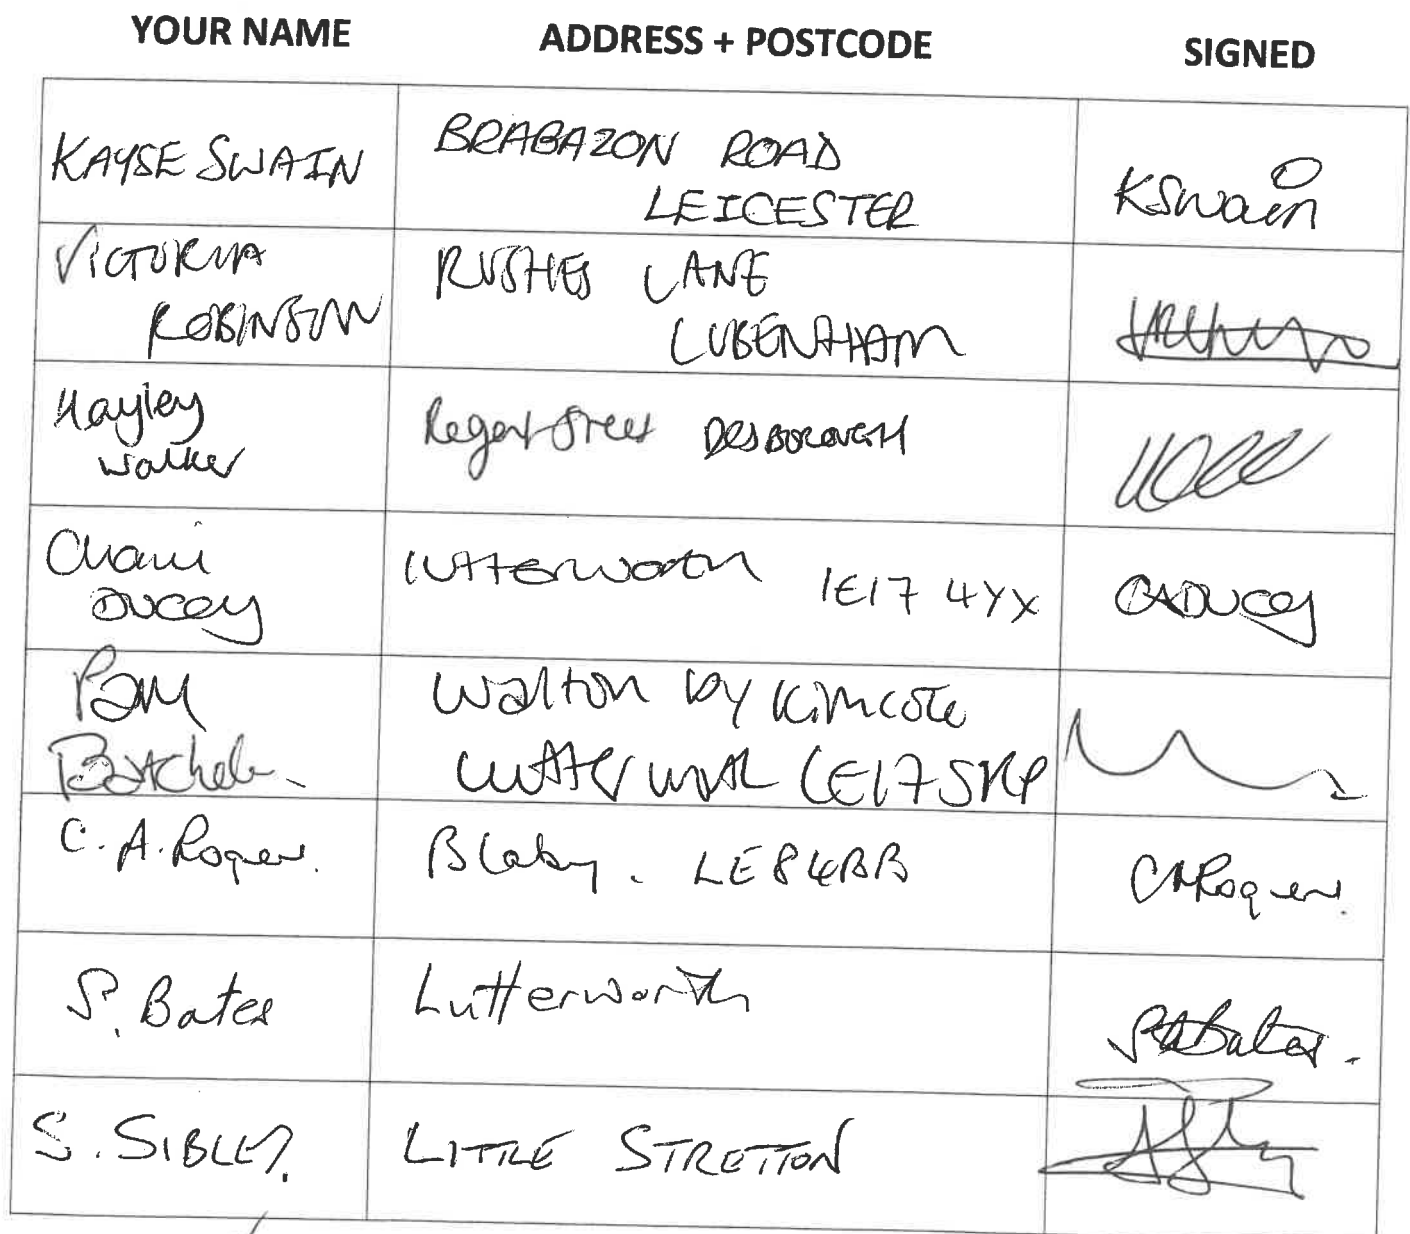 YOUR NAME ADDRESS + POSTCODE SIGNED
KAYSE SWAIN
BRABAZON ROAD
LEICESTER
KSwain
VICTORIA
ROBINSON
RUSHES LANE
LUBENHAM
Hayley
Walker
Regent Street DESBOROUGH
DUCEY
Lutterworth LE17 4YX
CADUCEY
Pam
Walton by Kimcote
Lutterworth LE17 5RP
C. A. Rogers.
Blaby. LE8 4BB
CARogers.
S. Bates
Lutterworth
SABates.
S. SIBLEY.
LITTLE STRETTON